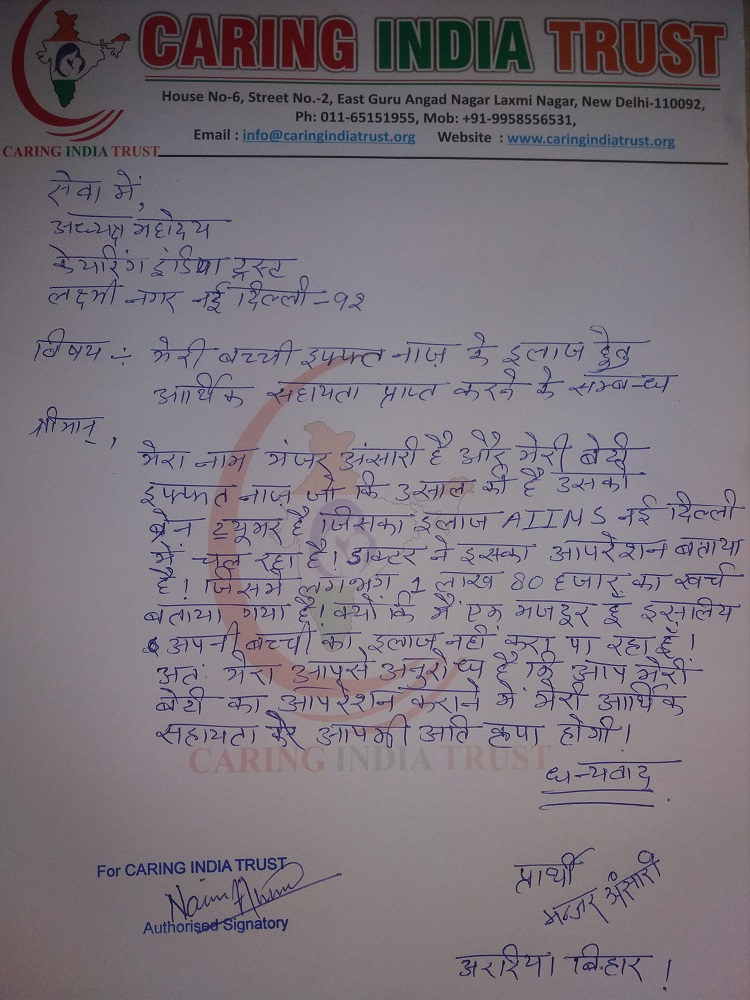 CARING INDIA TRUST
House No-6, Street No.-2, East Guru Angad Nagar Laxmi Nagar, New Delhi-110092,
Ph: 011-65151955, Mob: +91-9958556531,
Email : info@caringindiatrust.org Website : www.caringindiatrust.org
CARING INDIA TRUST
सेवा में,
अध्यक्ष महोदय
केयरिंग इंडिया ट्रस्ट
लक्ष्मी नगर नई दिल्ली-92
विषय :- मेरी बच्ची इफ्फत नाज़ के इलाज हेतु
आर्थिक सहायता प्राप्त करने के सम्बन्ध
श्रीमान्,
मेरा नाम मंजर अंसारी है और मेरी बेटी
इफ्फत नाज़ जो कि 3साल की है उसको
ब्रेन ट्यूमर है जिसका इलाज AIIMS नई दिल्ली
में चल रहा है। डाक्टर ने इसका आपरेशन बताया
है। जिसमें लगभग 1 लाख 80 हजार का खर्च
बताया गया है। क्यों कि मैं एक मजदूर हूं इसलिय
अपनी बच्ची का इलाज नहीं करा पा रहा हूं।
अतः मेरा आपसे अनुरोध है कि आप मेरी
बेटी का आपरेशन कराने में मेरी आर्थिक
सहायता करें आपकी अति कृपा होगी।
CARING INDIA TRUST
धन्यवाद
For CARING INDIA TRUST
Authorised Signatory
प्रार्थी
मन्जर अंसारी
अररिया बिहार।